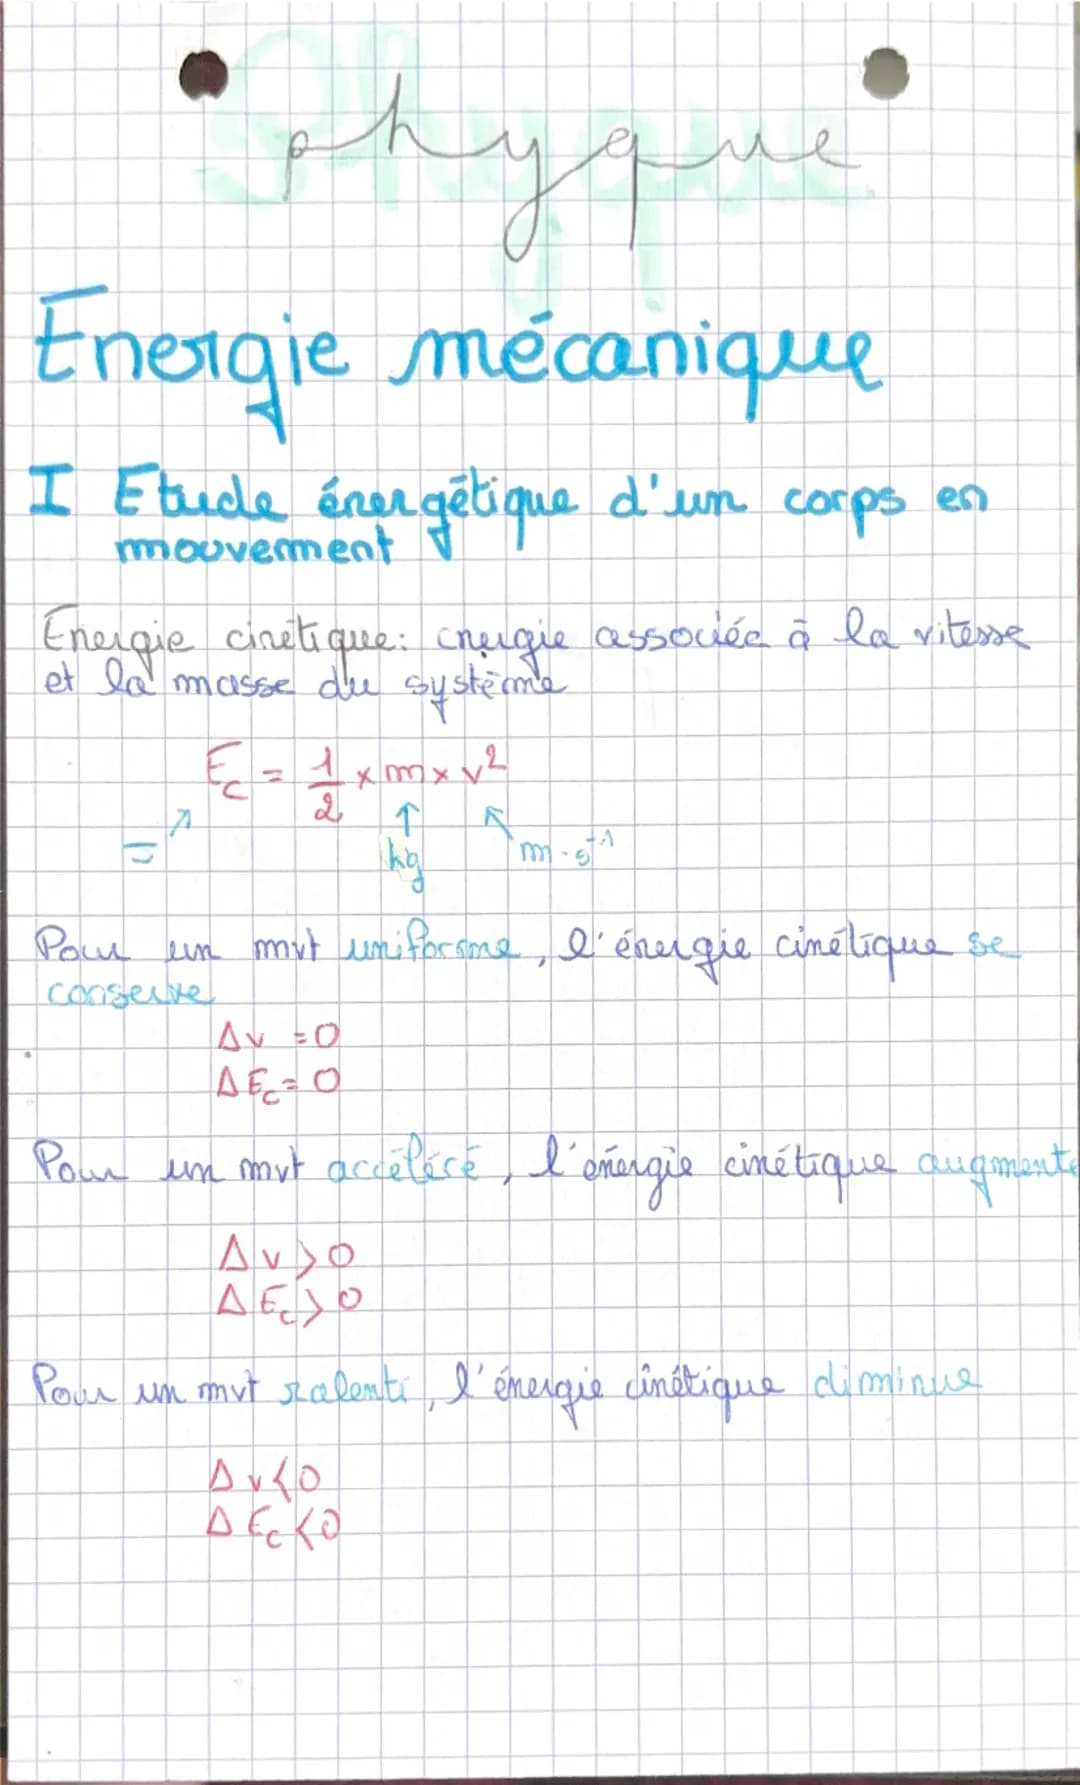 phyque
Energie mécanique
I Etude énergétique d'un corps en
mouvement
Energie cinétique: énergie associée à la vitesse
et la masse du système
Ec = 1/2 × m × v²
J
kg
m.s⁻¹
Pour un mvt uniforme, l'énergie cinétique se
conserve
Δv = 0
ΔEc = 0
Pour un mvt accéléré, l'énergie cinétique augmente
Δv > 0
ΔEc > 0
Pour un mvt ralenti, l'énergie cinétique diminue
Δv < 0
ΔEc < 0